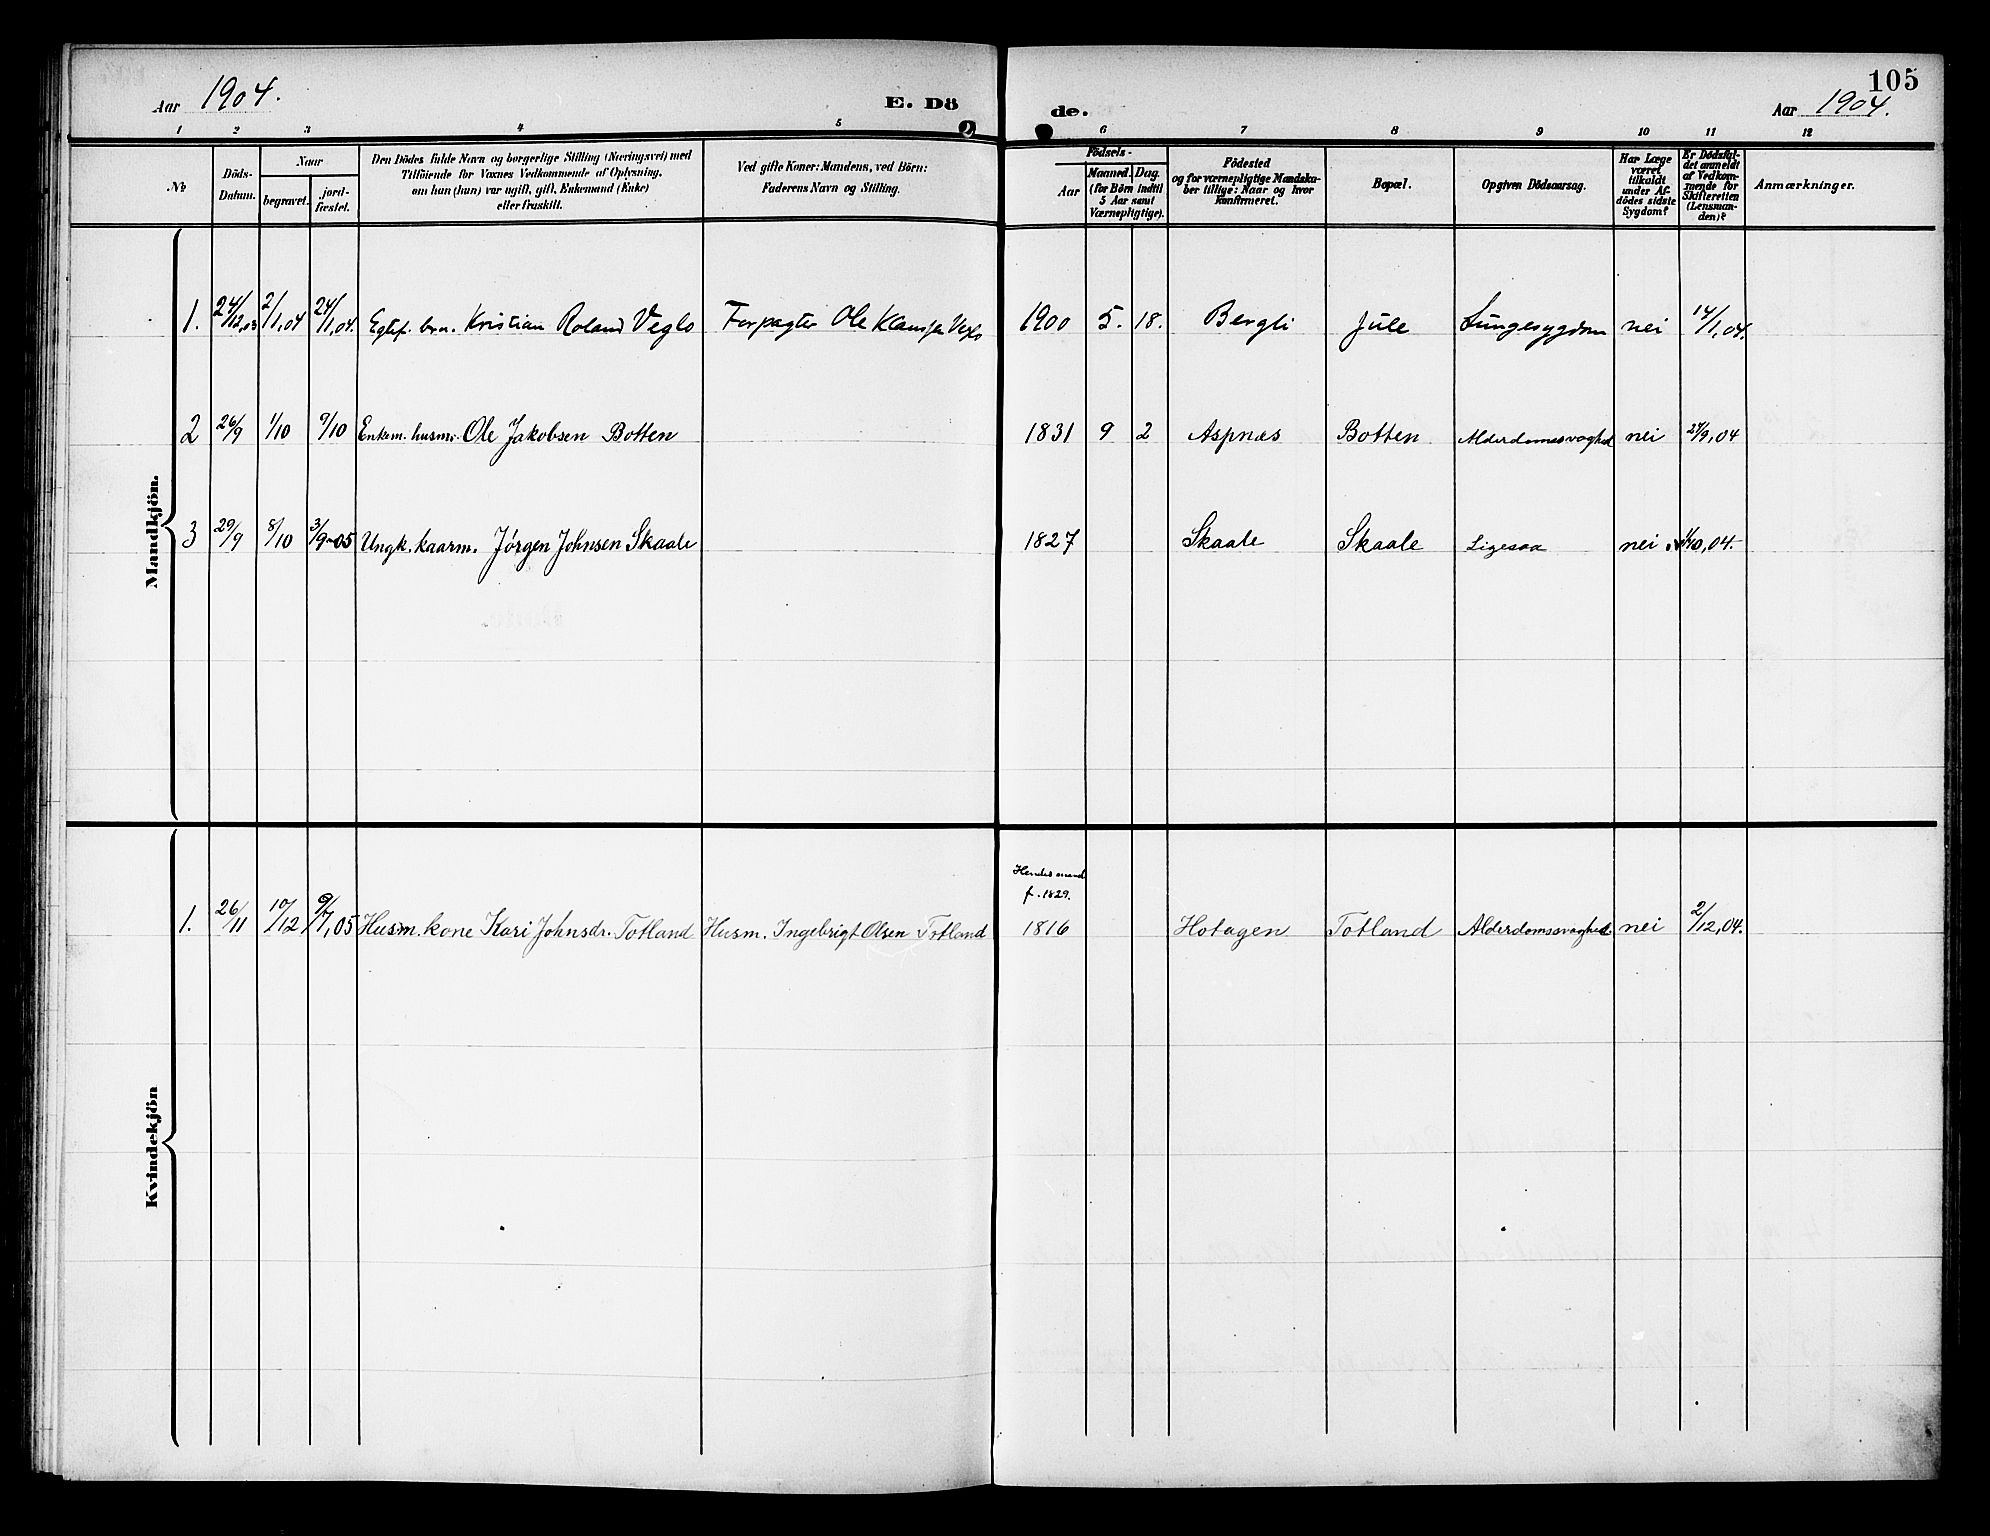 Aar 1904. E. Dö de. Aar 1904. 105
1 2 3 4 5 6 7 8 9 10 11 12
No
Döds-
Datum.
Naar
begravet.
jord-
fæstet.
Den Dödes fulde Navn og borgerlige Stilling (Næringsvei) med
Tilföiende for Voxnes Vedkommende af Oplysning,
om han (hun) var ugift, gift, Enkemand (Enke)
eller fraskilt.
Ved gifte Koner: Mandens, ved Börn:
Faderens Navn og Stilling.
Födsels-
Aar
Maaned. Dag.
(for Börn indtil
5 Aar samt
Værnepligtige).
Födested
og for værnepligtige Mandska-
ber tillige: Naar og hvor
konfirmeret.
Bopæl.
Opgiven Dödsaarsag.
Har Læge
været
tilkaldt
under Af-
dödes sidste
Sygdom?
Er Dödsfal-
det anmeldt
af Vedkom-
mende for
Skifteretten
(Lensman-
den)?
Anmærkninger.
Mandkjön.
1. 24/12,03 2/1,04 24/1,04. Egtef. brn. Kristian Roland Veglo Forpagter Ole Klausen Veglo 1900 5. 18. Bergli Jule Lungesygdom nei 14/1,04.
2 26/9 1/10 9/10 Enkem. husm. Ole Jakobsen Botten 1831 9 2 Aspnæs Botten Alderdomssvaghed nei 27/9,04
3 29/9 8/10 3/9-05 Ungk. kaarm. Jørgen Johnsen Skaale 1827 Skaale Skaale Ligesaa nei 1/10,04.
Kvindekjön
Hendes mand
f. 1829.
1. 26/11 10/12 9/7,05 Husm. kone Kari Johnsdr. Totland Husm. Ingebrigt Olsen Totland 1816 Hotagen Totland Alderdomssvaghed nei 2/12,04.